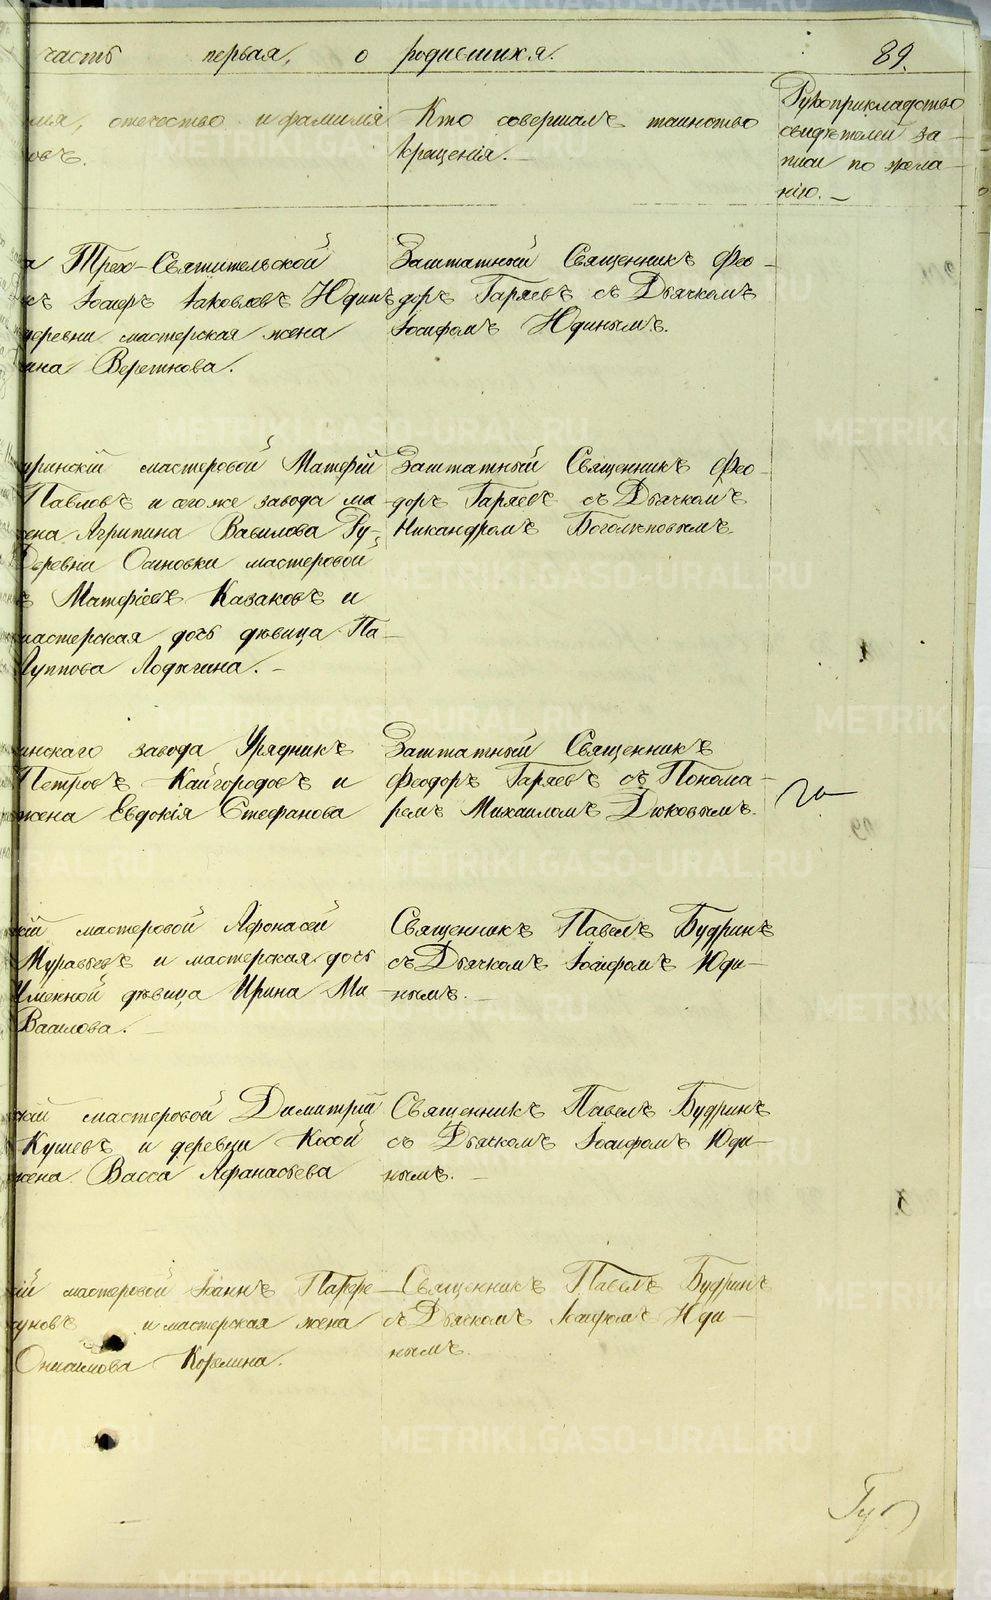 часть первая, о родившихся. 89.
имя, отечество и фамилія
овъ.
Кто совершалъ таинство
крещенія.
Рукоприкладство
свидѣтелей за-
писи по жела-
нію.
Трех-Святительской
Іосифъ Іаковлевъ Юдинъ
деревни мастерская жена
Веретнова.
Заштатный Священникъ Фео-
доръ Гаряевъ съ Дьячкомъ
Іосифомъ Юдинымъ.
мастеровой Матфій
Павловъ и того же завода ма
Агрипина Вавилова Гу-
Деревни Осиновки мастеровой
Матфіевъ Казаковъ и
мастерская дочь дѣвица Па-
Луппова Лодыгина.
Заштатный Священникъ Фео-
доръ Гаряевъ съ Дьячкомъ
Никандромъ Боголѣповымъ.
инскаго завода Урядникъ
Петровъ Кайгородовъ и
жена Евдокія Стефанова
Заштатный Священникъ
Феодоръ Гаряевъ съ Понома-
ремъ Михаиломъ Дюковымъ.
кій мастеровой Афонасей
Муравьевъ и мастерская дочь
дѣвица Ирина Ми-
Священникъ Павелъ Будринъ
съ Дьячкомъ Іосифомъ Юди-
нымъ.
скій мастеровой Димитрій
Кушевъ и деревни Косой
жена Васса Афанасьева
Священникъ Павелъ Будринъ
съ Дьячкомъ Іосифомъ Юди-
нымъ.
ій мастеровой Іоаннъ Парфе-
уновъ и мастерская жена
Онисимова Корелина.
Священникъ Павелъ Будринъ
съ Дьячкомъ Іосифомъ Юди-
нымъ.
METRIKI.GASO-URAL.RU